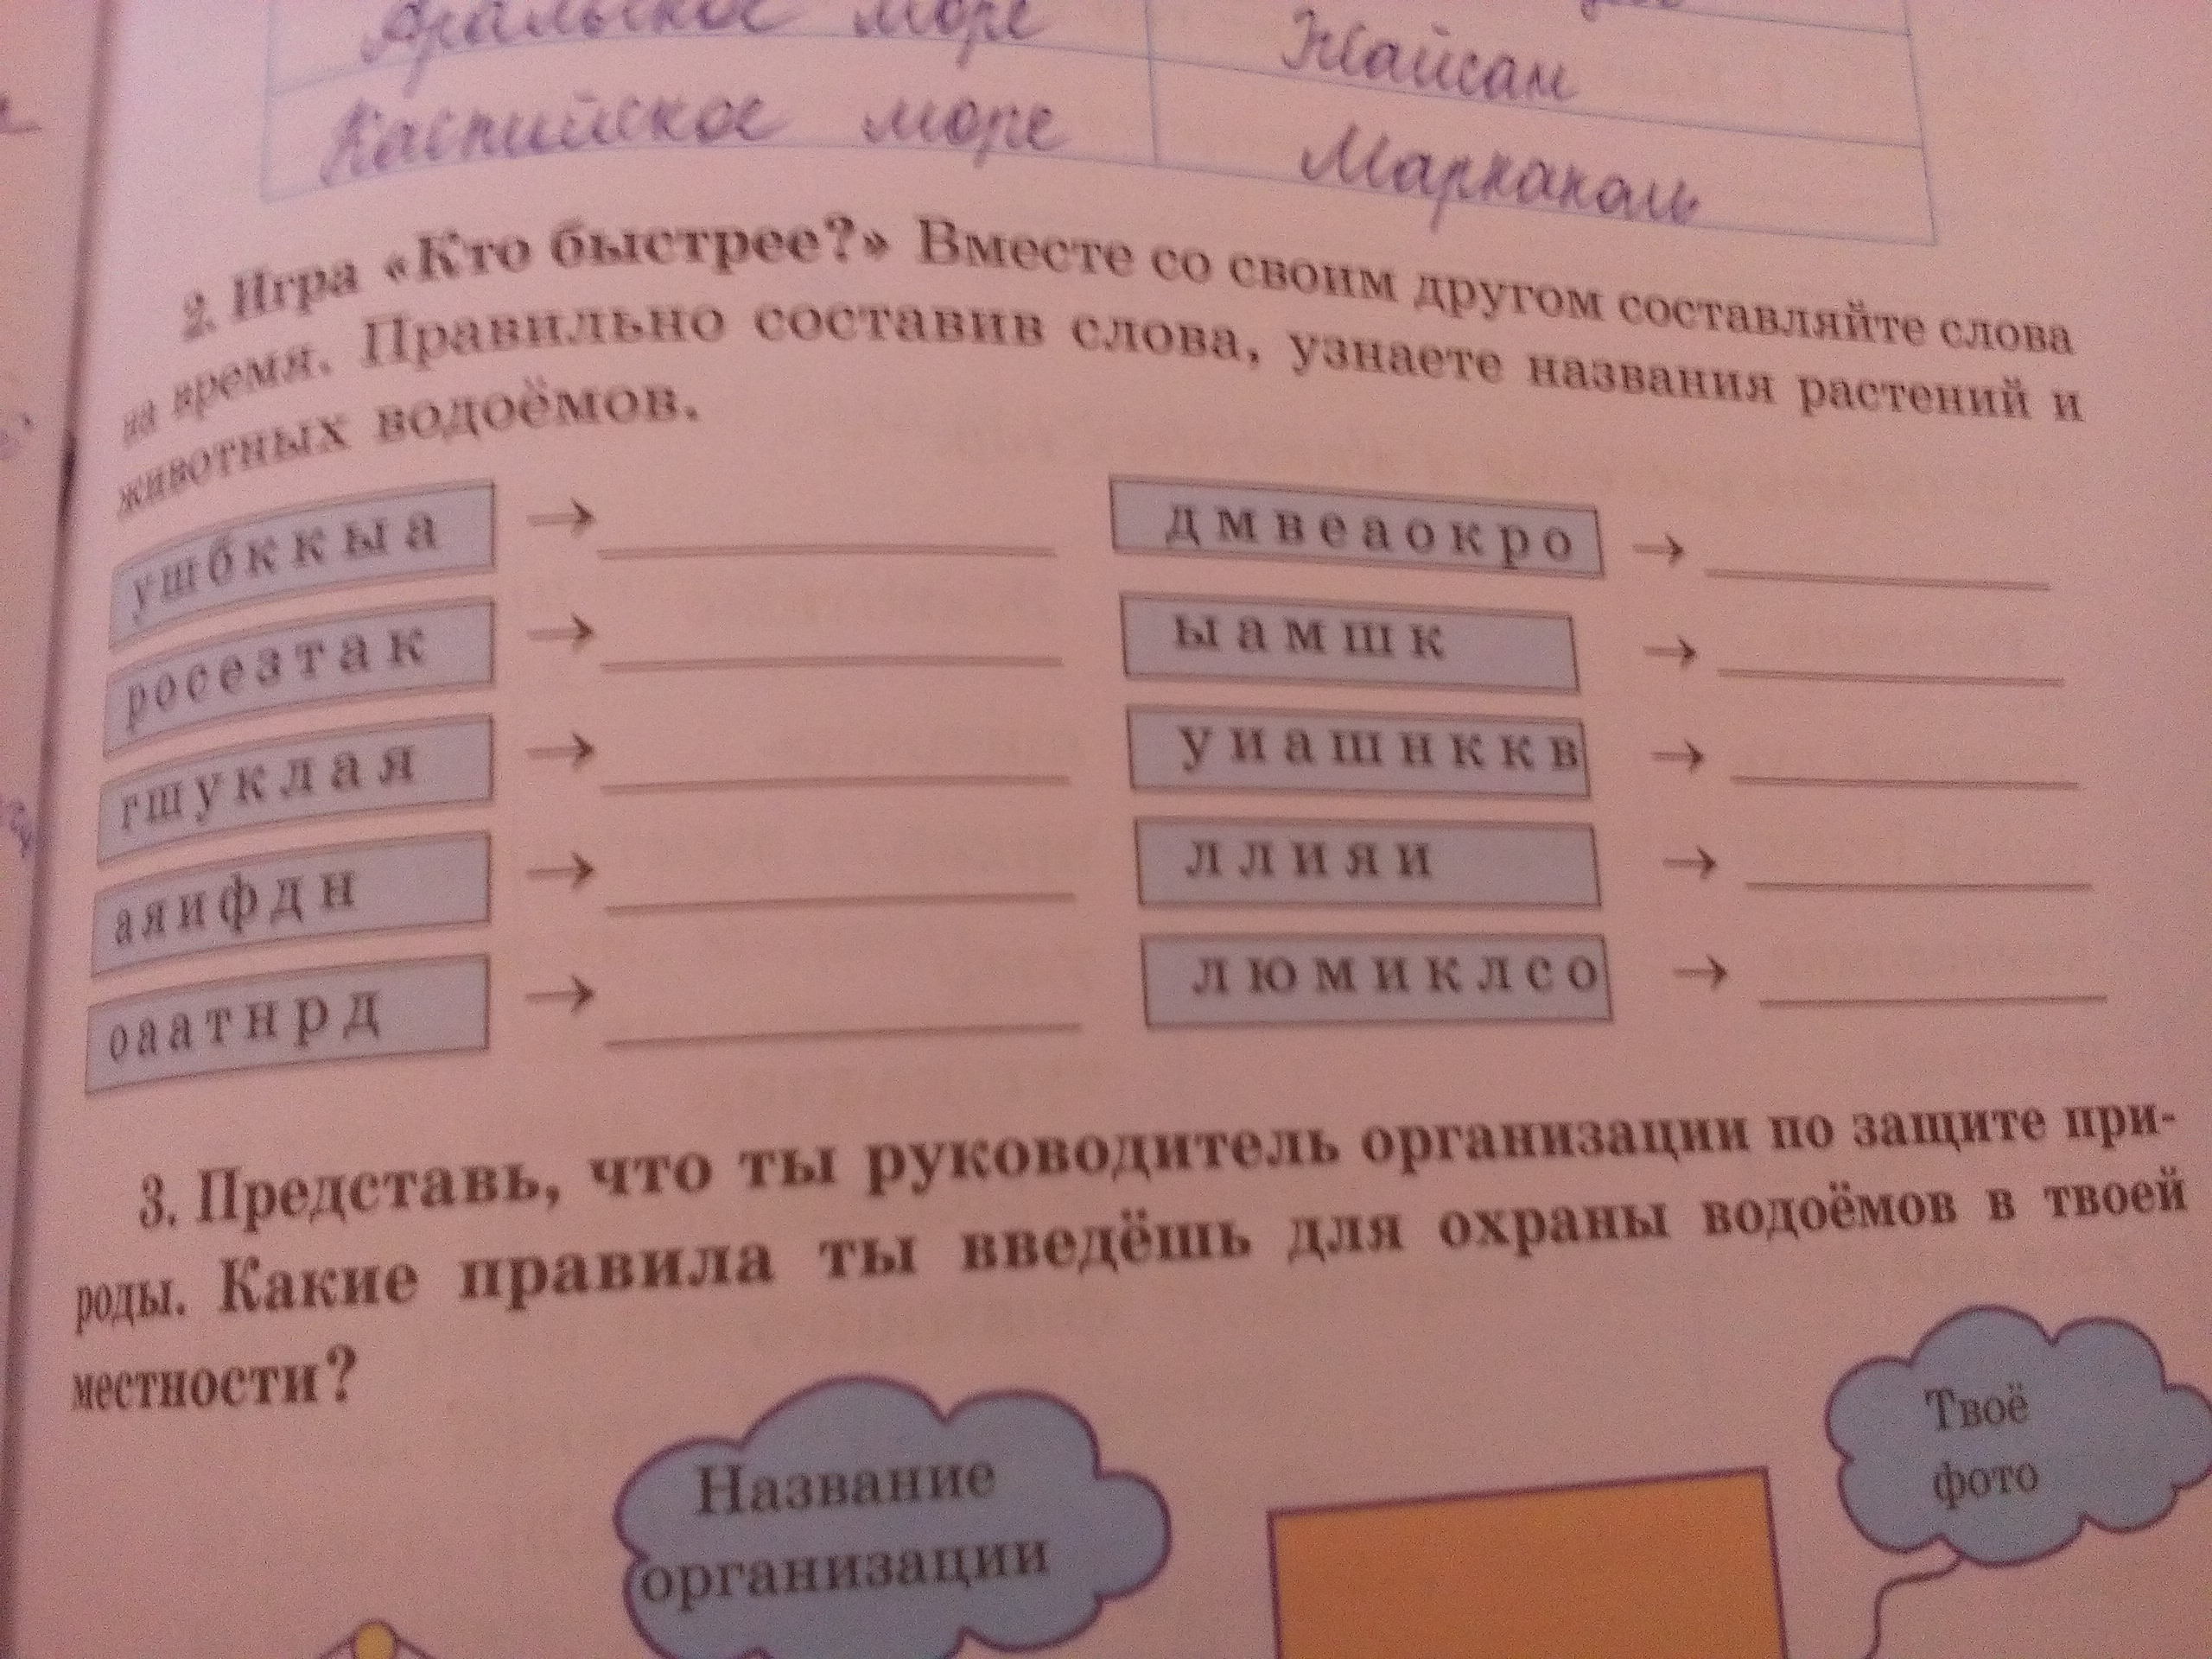 Аральское море Жайсан
Каспийское море Марпаколь
2. Игра «Кто быстрее?» Вместе со своим другом составляйте слова
на время. Правильно составив слова, узнаете названия растений и
животных водоёмов.
ушбккыа → дмвеаокро →
росезтак → ыамшк →
гшуклая → уиашнккв →
аяифдн → ллияи →
оаатнрд → люмиклсо →
3. Представь, что ты руководитель организации по защите при-
роды. Какие правила ты введёшь для охраны водоёмов в твоей
местности?
Название
организации
Твоё
фото